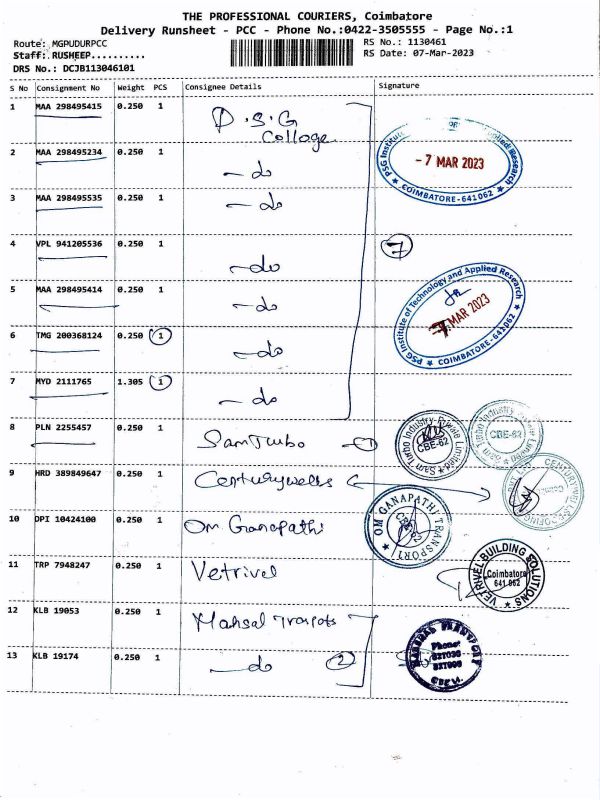 THE PROFESSIONAL COURIERS, Coimbatore
Delivery Runsheet - PCC - Phone No.:0422-3505555 - Page No.:1
Route: MGPUDURPCC
RS No.: 1130461
Staff: RUSHEEP..........
RS Date: 07-Mar-2023
DRS No.: DCJB113046101
S No Consignment No Weight PCS Consignee Details Signature
1 MAA 298495415 0.250 1 P.S.G College
PSG Institute of Technology and Applied Research
- 7 MAR 2023
★ COIMBATORE-641062 ★
2 MAA 298495234 0.250 1 - do
3 MAA 298495535 0.250 1 - do
4 VPL 941205536 0.250 1 - do 7
5 MAA 298495414 0.250 1 - do
PSG Institute of Technology and Applied Research
7 MAR 2023
★ COIMBATORE-641062 ★
6 TMG 200368124 0.250 1 - do
7 MYD 2111765 1.305 1 - do
8 PLN 2255457 0.250 1 Sam Turbo - 1
Sam Turbo Industry Private Limited
CBE-62
Sam Turbo Industry Private Limited
CBE-62
9 HRD 389849647 0.250 1
10 DPI 10424100 0.250 1 Om Ganapathi
OM GANAPATHI TRANSPORT
CBE-62
11 TRP 7948247 0.250 1 Vetrivel
VETRIVEL BUILDING SOLUTIONS
Coimbatore
641 062
12 KLB 19053 0.250 1
Phone:
13 KLB 19174 0.250 1 - do 2